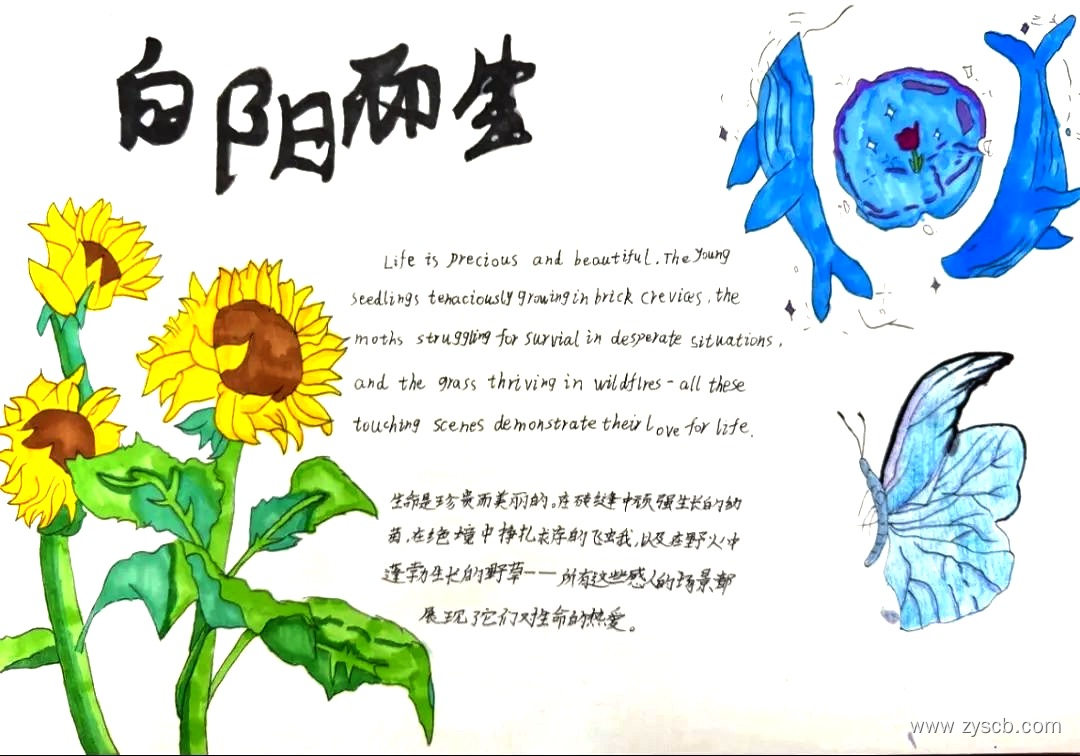 向阳而生
Life is precious and beautiful. The Young
seedlings tenaciously growing in brick crevices, the
moths struggling for survial in desperate situations,
and the grass thriving in wildfires - all these
touching scenes demonstrate their love for life.
生命是珍贵而美丽的。在砖缝中顽强生长的幼
苗,在绝境中挣扎求存的飞蛾,以及在野火中
蓬勃生长的野草——所有这些感人的场景都
展现了它们对生命的热爱。
www.zyscb.com